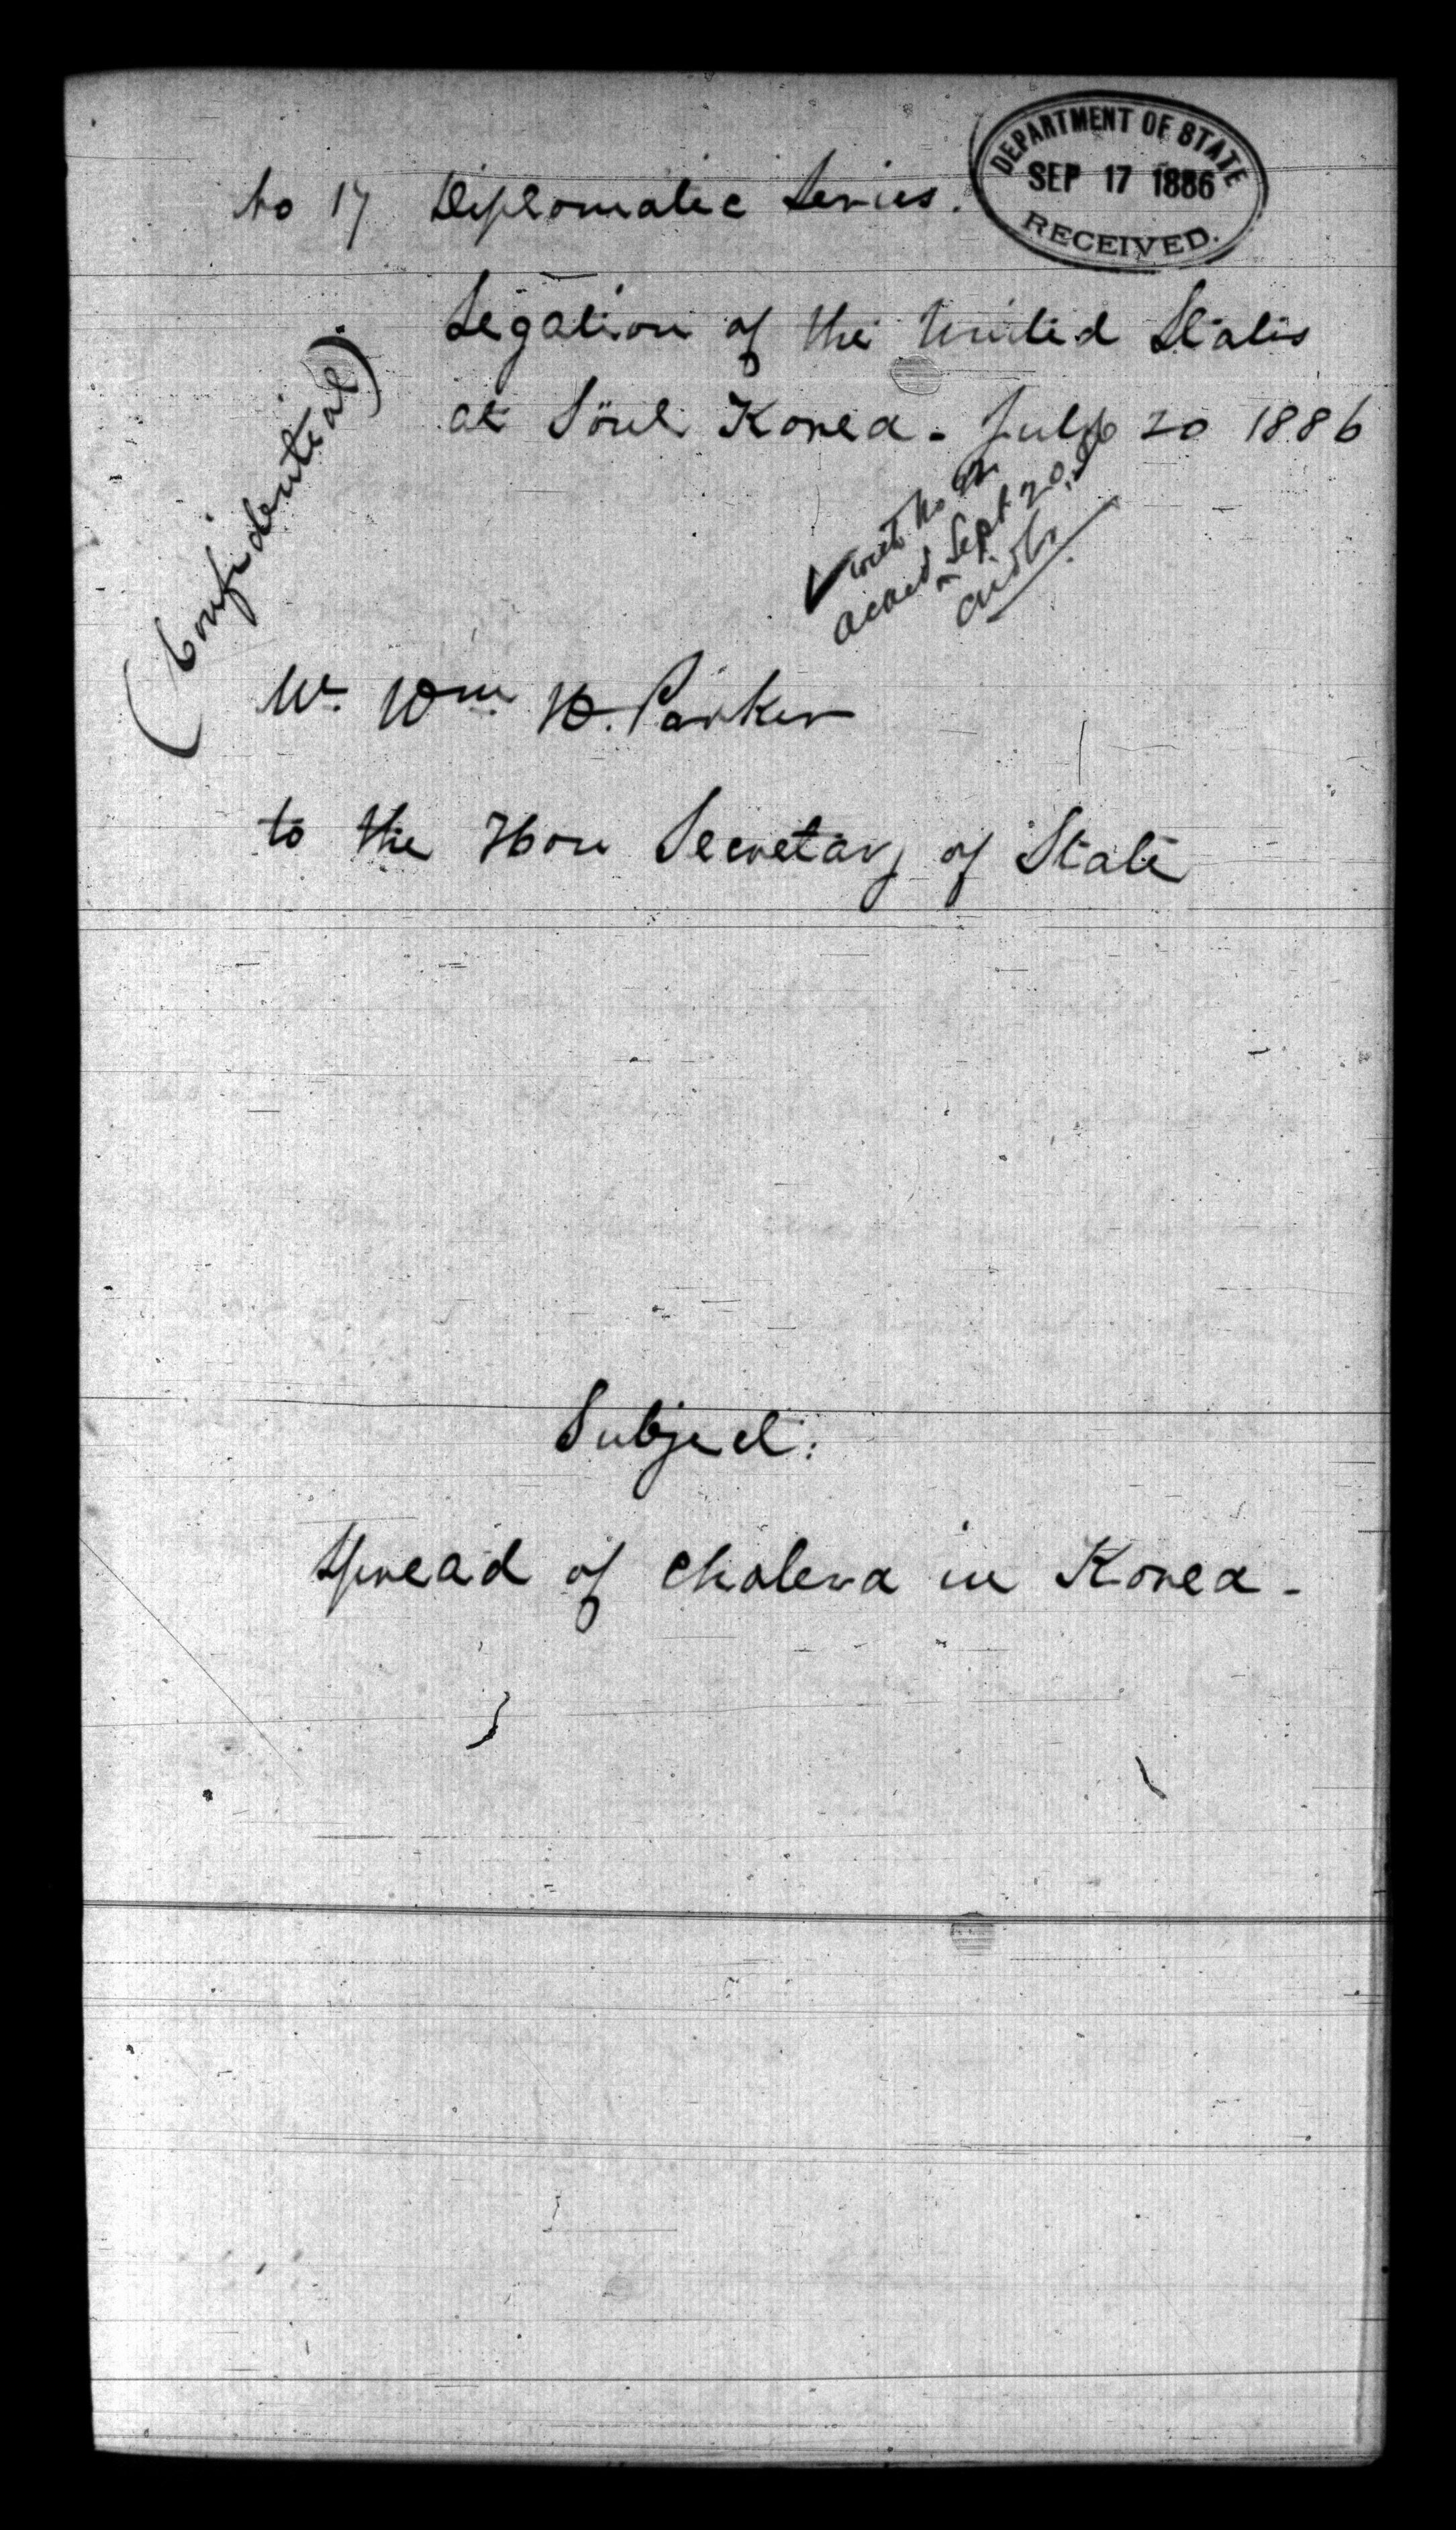 No 17 Diplomatic Series.
DEPARTMENT OF STATE
SEP 17 1886
RECEIVED.
Legation of the United States
at Söul Korea - July 20 1886
(Confidential)
with No
Sept 20, 86
Mr. Wm H. Parker
to the Hon Secretary of State
Subject:
Spread of cholera in Korea -